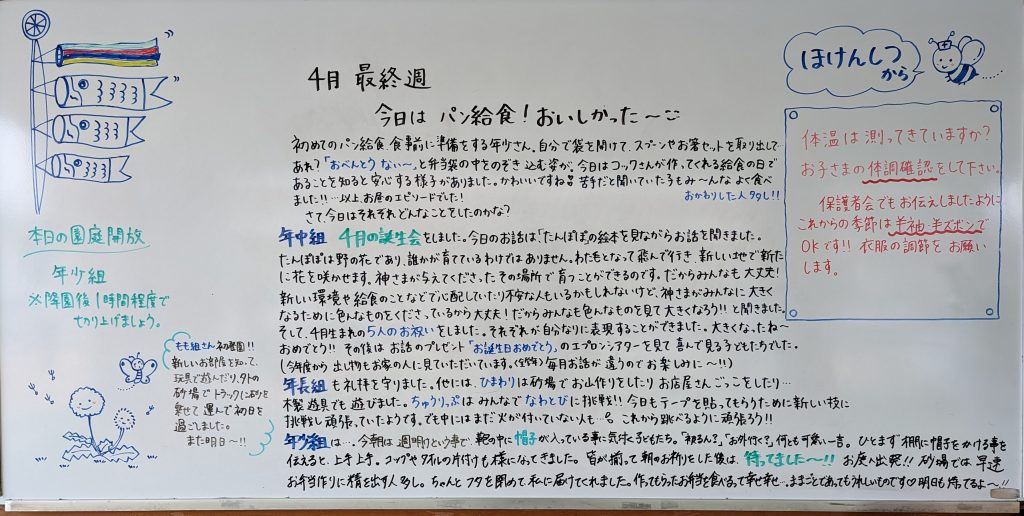 4月 最終週
今日は パン給食！おいしかった〜
初めてのパン給食、食事前に準備をする年少さん。自分で袋を開けて、スプーンやお箸セットを取り出して
あれ？「おべんとう ない〜」と弁当袋の中をのぞき込む姿が、今日はコックさんが作ってくれる給食の日で
あることを知ると安心する様子がありました。かわいいですね 苦手だと聞いていた子もみ〜んな よく食べ
ました!! …以上、お昼のエピソードでした！
おかわりした人多し!!
さて今日はそれぞれどんなことをしたのかな？
年中組 4月の誕生会をしました。今日のお話は「たんぽぽ」の絵本を見ながらお話を聞きました。
たんぽぽは野の花であり、誰かが育てているわけではありません。わたをとなって飛んで行き、新しい地で新た
に花を咲かせます。神さまが与えてくださったその場所で育つことができるのです。だからみんなも大丈夫！
新しい環境や給食のことなどで心配していたり不安な人もいるかもしれないけど、神さまがみんなに大きく
なるために色んなものをくださっているから大丈夫！だからみんなも色んなものを見て大きくなろう!! と聞きました。
そして、4月生まれの5人のお祝いをしました。それぞれが自分なりに表現することができました。大きくなったね〜
おめでとう!! その後は お話のプレゼント「お誕生日おめでとう」のエプロンシアターを見て 喜んで見る子どもたちでした。
(今年度から 出し物もお家の人に見ていただいています。(全学年) 毎月お話が違うのでお楽しみに〜!!)
年長組 も礼拝を守りました。他には、ひまわりは砂場でお山作りをしたり お店屋さんごっこをしたり…
木製遊具でも遊びました。ちゅうりっぷは みんなで なわとびに挑戦!! 今日もテープを貼ってもらうために新しい技に
挑戦し頑張っていたようです。でも中にはまだ火が付いていない人も… これから跳べるように頑張ろう!!
年少組は… 今朝は週明けという事で、鞄の中に帽子が入っている事に気付く子どもたち。「初るん？」「お外行く？」何とも可愛い一言。ひとまず棚に帽子をかける事を
伝えると、上手上手。コップやタオルの片付けも様になってきました。皆が揃って朝のお祈りをした後は、待ってました〜!! お庭へ出発!! 砂場では早速
お弁当作りに精を出す人多し。ちゃんとフタを閉めて私に届けてくれました。作ってもらったお弁当を食べるって幸せ幸せ…ままごとであってもうれしいものです♡明日も待ってるよ〜!!
本日の園庭開放
年少組
※降園後1時間程度で
切り上げましょう。
もも組さん初登園!!
新しいお部屋を知って、
玩具で遊んだり、外の
砂場でトラックに砂を
乗せて運んで初日を
過ごしました。
また明日〜!!
ほけんしつ
から
体温は測ってきていますか？
お子さまの体調確認をして下さい。
保護者会でもお伝えしましたように
これからの季節は半袖・半ズボンで
OKです!! 衣服の調節をお願い
します。